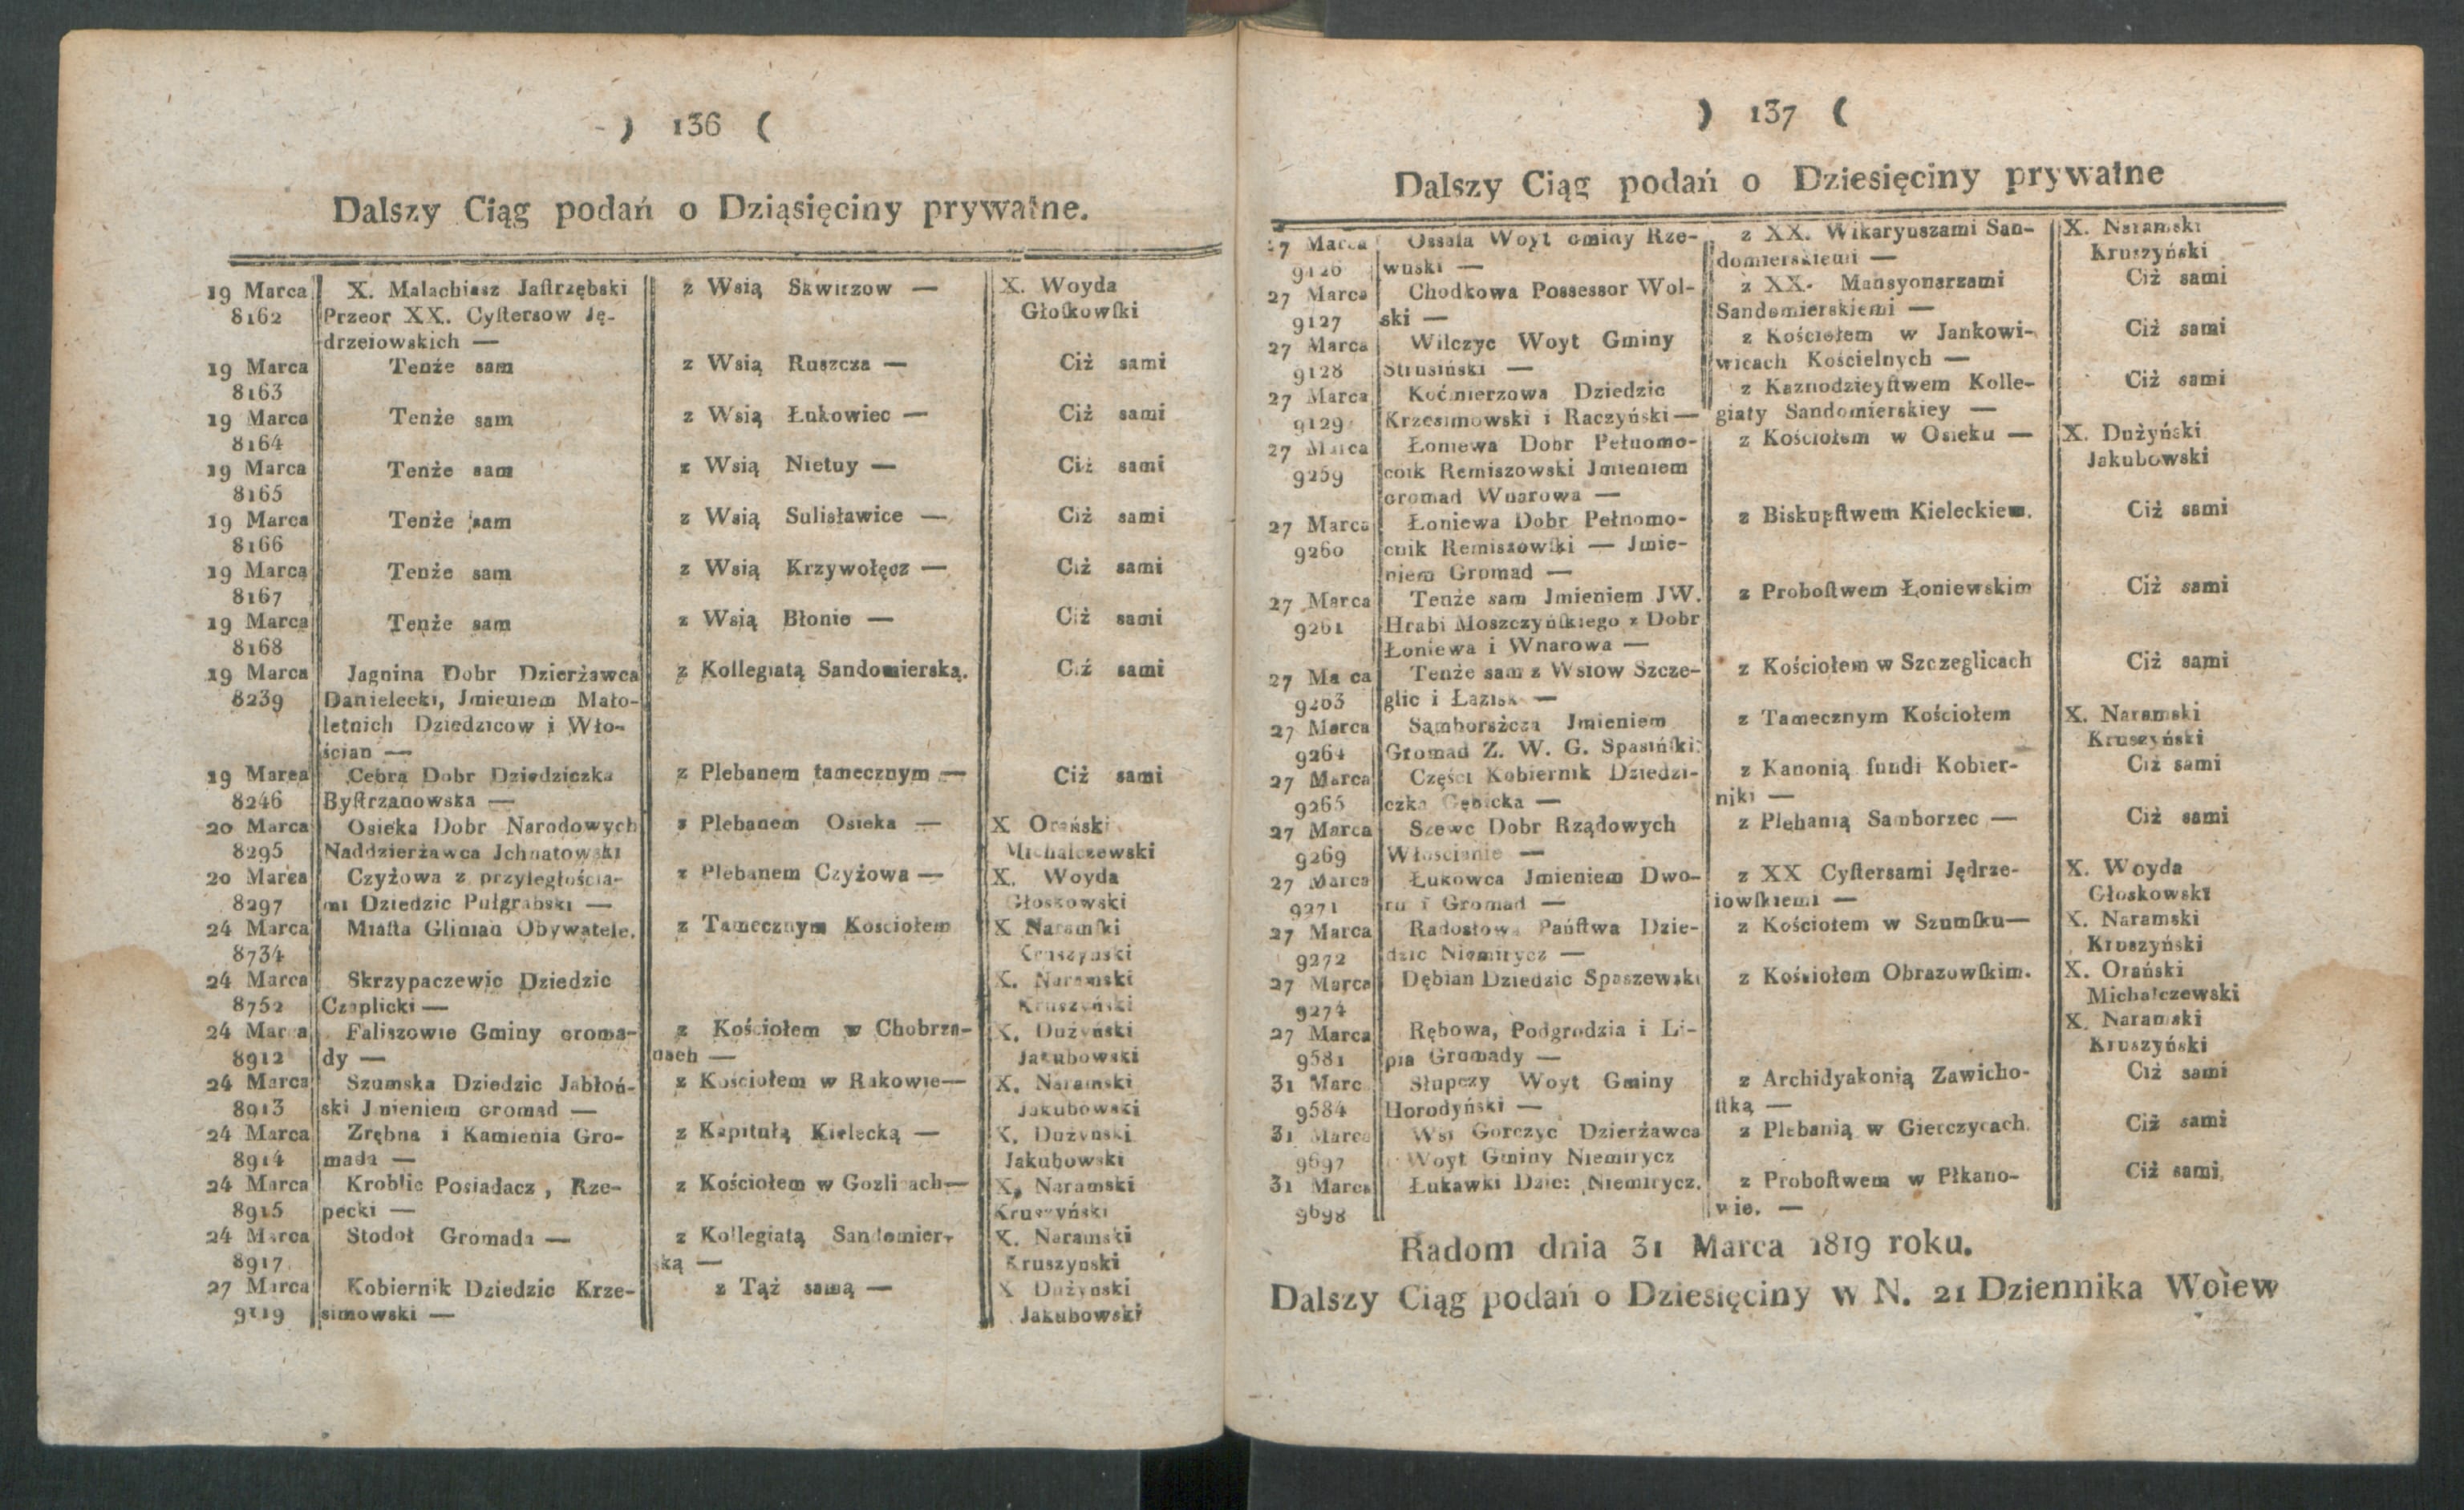 ) 136 (
Dalszy Ciąg podań o Dziąsięciny prywatne.
19 Marca X. Malachiasz Jaſtrzębski z Wsią Skwirzow — X. Woyda
8162 Przeor XX. Cyſtersow Ję- Głoſkowſki
drzeiowskich —
19 Marca Tenże sam z Wsią Ruszcza — Ciż sami
8163
19 Marca Tenże sam z Wsią Łukowiec — Ciż sami
8164
19 Marca Tenże sam z Wsią Nietuy — Ciż sami
8165
19 Marca Tenże sam z Wsią Sulisławice — Ciż sami
8166
19 Marca Tenże sam z Wsią Krzywołęcz — Ciż sami
8167
19 Marca Tenże sam z Wsią Błonie — Ciż sami
8168
19 Marca Jagnina Dobr Dzierżawca z Kollegiatą Sandomierską. Ciż sami
8239 Danielecki, Jmieniem Mało-
letnich Dziedzicow i Wło-
ścian —
19 Marca Cebra Dobr Dziedziczka z Plebanem tamecznym — Ciż sami
8246 Byſtrzanowska —
20 Marca Osieka Dobr Narodowych z Plebanem Osieka — X Orański
8295 Naddzierżawca Jchnatowski Michalczewski
20 Marca Czyżowa z przyległościa- z Plebanem Czyżowa — X. Woyda
8297 mi Dziedzic Pułgrabski — Głoskowski
24 Marca Miaſta Glinian Obywatele. z Tamecznym Kosciołem X Naramſki
8734 Kruszyński
24 Marca Skrzypaczewic Dziedzic X. Naramski
8752 Czaplicki — Kruszyński
24 Marca Faliszowie Gminy Groma- z Kościołem w Chobrza- X. Dużyński
8912 dy — nach — Jakubowski
24 Marca Szumska Dziedzic Jabłoń- z Kościołem w Rakowie — X. Naramski
8913 ski Jmieniem Gromad — Jakubowski
24 Marca Zrębna i Kamienia Gro- z Kapitułą Kielecką — X. Dużyński
8914 mada — Jakubowski
24 Marca Kroblic Posiadacz, Rze- z Kościołem w Gozlicach — X. Naramski
8915 pecki — Kruszyński
24 Marca Stodoł Gromada — z Kollegiatą Sandomier- X. Naramski
8917 ską — Kruszynski
27 Marca Kobiernik Dziedzic Krze- z Tąż samą — X Dużynski
9119 simowski — Jakubowski
) 137 (
Dalszy Ciąg podań o Dziesięciny prywatne
27 Marca Ossala Woyt Gminy Rze- z XX. Wikaryuszami San- X. Naramski
9126 wuski — domierskiemi — Kruszyński
27 Marca Chodkowa Possessor Wol- z XX. Mansyonarzami Ciż sami
9127 ski — Sandomierskiemi —
27 Marca Wilczyc Woyt Gminy z Kościołem w Jankowi- Ciż sami
9128 Strusiński — wicach Kościelnych —
27 Marca Koćmierzowa Dziedzic z Kaznodzieyſtwem Kolle- Ciż sami
9129 Krzesimowski i Raczyński — giaty Sandomierskiey —
27 Marca Łoniewa Dobr Pełnomo- z Kościołem w Osieku — X. Dużyński
9259 cnik Remiszowski Jmieniem Jakubowski
Gromad Wnarowa —
27 Marca Łoniewa Dobr Pełnomo- z Biskupſtwem Kieleckiem. Ciż sami
9260 cnik Remiszowſki — Jmie-
niem Gromad —
27 Marca Tenże sam Jmieniem JW. z Proboſtwem Łoniewskim Ciż sami
9261 Hrabi Moszczyńſkiego z Dobr
Łoniewa i Wnarowa —
27 Ma ca Tenże sam z Wsiow Szcze- z Kościołem w Szczeglicach Ciż sami
9263 glic i Łazisk —
27 Marca Samborszcza Jmieniem z Tamecznym Kościołem X. Naramski
9264 Gromad Z. W. G. Spasińſki. Kruszyński
27 Marca Części Kobiernik Dziedzi- z Kanonią fundi Kobier- Ciż sami
9265 czka Gębicka — niki —
27 Marca Szewc Dobr Rządowych z Plebanią Samborzec — Ciż sami
9269 Włoscianie —
27 Marca Łukowca Jmieniem Dwo- z XX Cyſtersami Jędrze- X. Woyda
9271 ru i Gromad — iowſkiemi — Głoskowski
27 Marca Radosłowa Pańſtwa Dzie- z Kościołem w Szumſku — X. Naramski
9272 dzic Niemirycz — Kruszyński
27 Marca Dębian Dziedzic Spaszewski z Kościołem Obrazowſkim. X. Orański
9274 Michalczewski
27 Marca Rębowa, Podgrodzia i Li- X. Naramski
9581 pia Gromady — Kruszyński
31 Marc Słupczy Woyt Gminy z Archidyakonią Zawicho- Ciż sami
9584 Horodyński — ſtką —
31 Marca Wsi Gorczyc Dzierżawca z Plebanią w Gierczycach. Ciż sami
9697 Woyt Gminy Niemirycz
31 Marca Łukawki Dzic: Niemirycz. z Proboſtwem w Płkano- Ciż sami.
9698 wie. —
Radom dnia 31 Marca 1819 roku.
Dalszy Ciąg podań o Dziesięciny w N. 21 Dziennika Woiew